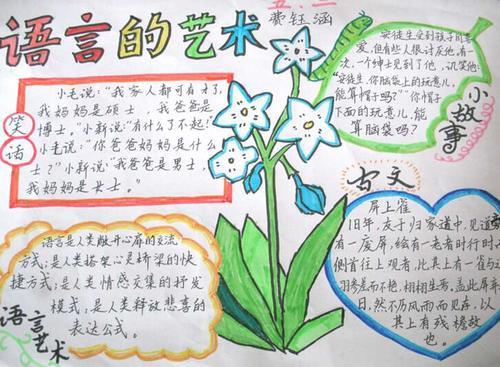 语言的艺术
五.二
费钰涵
笑话
小毛说:"我家人都可有才了,
我妈妈是硕士,我爸爸是
博士,"小新说"有什么了不起!"
小毛说:"你爸爸妈妈是什么
士?"小新说:"我爸爸是男士,
我妈妈是女士。"
小故事
安徒生受到孩子的喜
爱,但有些人很讨厌他,有一
次,一个绅士见到了他,讥笑他:
"安徒生,你脑袋上的玩意儿,
能算帽子吗?""你帽子
下面的玩意儿,能
算脑袋吗?"
语言艺术
语言是人类敞开心扉的交流
方式;是人类搭架心灵桥梁的快
捷方式;是人类情感交集的抒发
模式,是人类释放悲喜的
表达公式。
古文
屏上雀
旧年,友子归家道中,见道旁
有一废屏,绘有一老者时行时
侧首往上观者,比其上有一雀与之
羽参差而不艳,栩栩生焉,盖此屏弃
日,然不历风雨而见存,以
其上有残檐故
也。